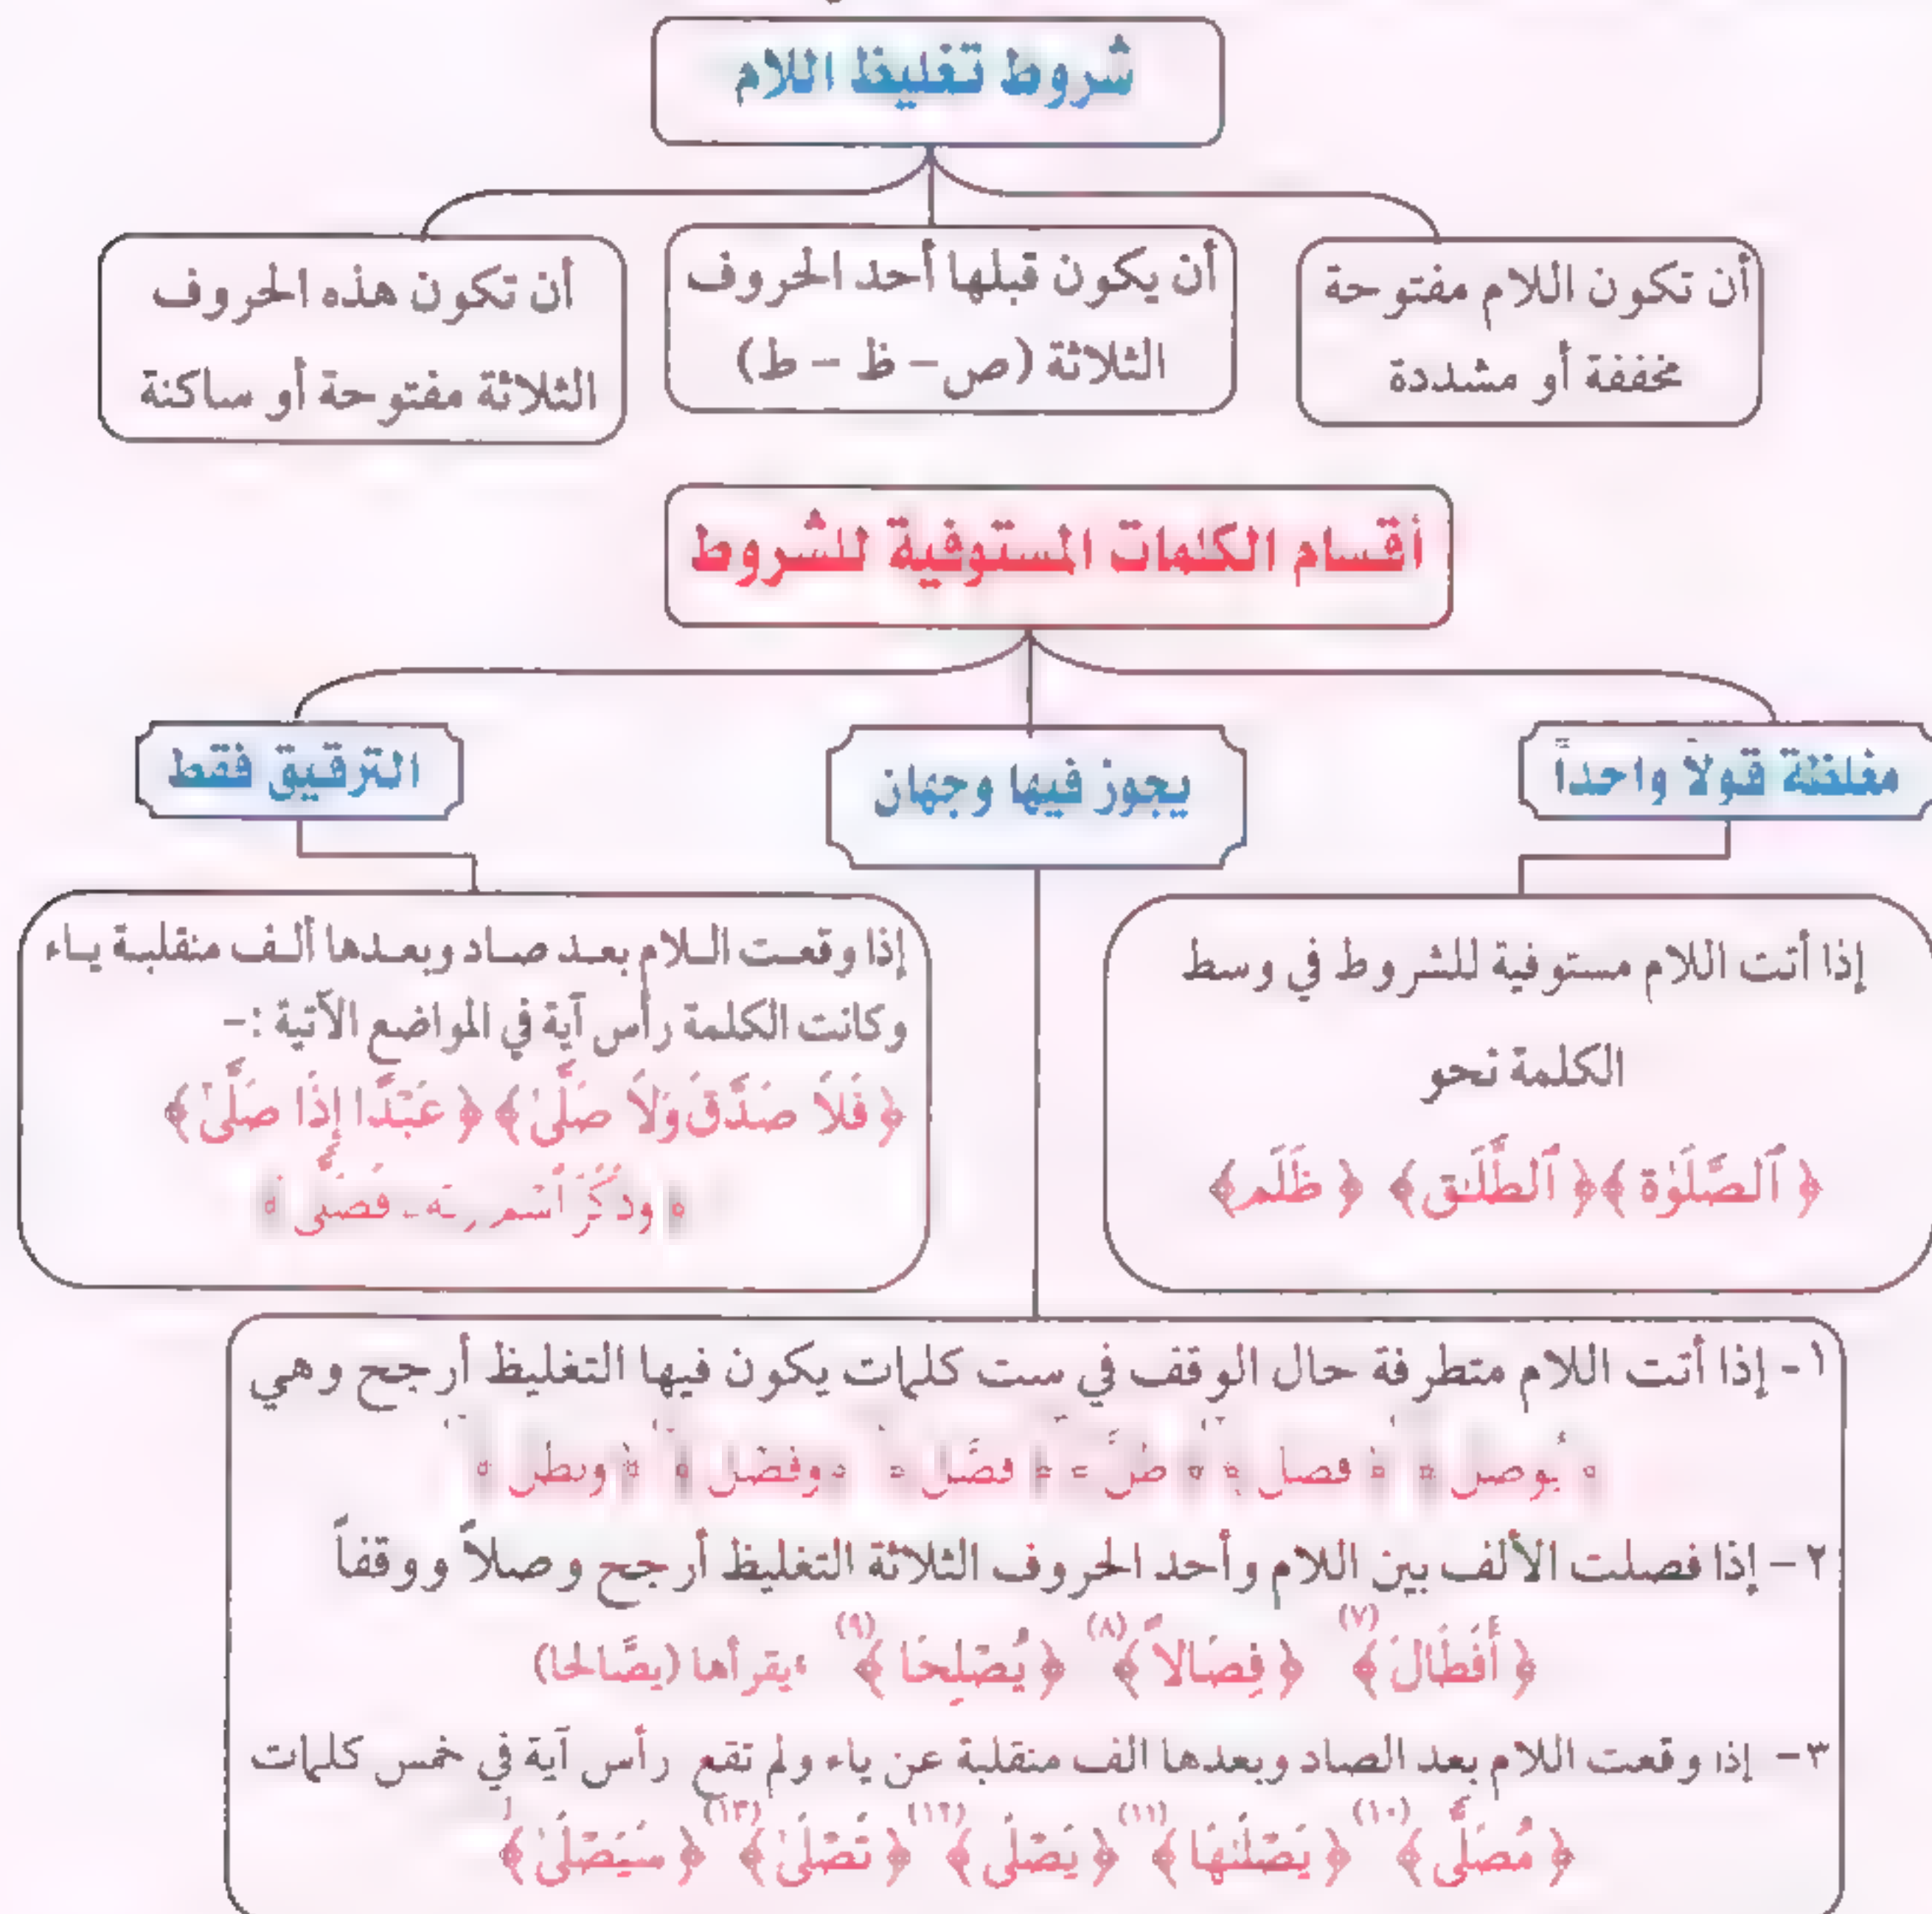 شروط تغليظ اللام
أن تكون اللام مفتوحة
مخففة أو مشددة
أن يكون قبلها أحد الحروف
الثلاثة (ص - ظ - ط)
أن تكون هذه الحروف
الثلاثة مفتوحة أو ساكنة
أقسام الكلمات المستوفية للشروط
مغلظة قولاً واحداً
يجوز فيها وجهان
الترقيق فقط
إذا أتت اللام مستوفية للشروط في وسط
الكلمة نحو
﴿ ٱلصَّلَوٰةَ ﴾ ﴿ ٱلطَّلَـٰقَ ﴾ ﴿ ظَلَمَ ﴾
إذا وقعت اللام بعد صاد وبعدها ألف منقلبة ياء
وكانت الكلمة رأس آية في المواضع الآتية :-
﴿ فَلَا صَدَّقَ وَلَا صَلَّىٰ ﴾ ﴿ عَبْدًا إِذَا صَلَّىٰ ﴾
﴿ وَذَكَرَ ٱسْمَ رَبِّهِۦ فَصَلَّىٰ ﴾
١ - إذا أتت اللام متطرفة حال الوقف في ست كلمات يكون فيها التغليظ أرجح وهي
﴿ يُوصَلَ ﴾ ﴿ فَصَلَ ﴾ ﴿ ظَلَّ ﴾ ﴿ فَصَّلَ ﴾ ﴿ وَفَصْلَ ﴾ ﴿ وَبَطَلَ ﴾
٢ - إذا فصلت الألف بين اللام وأحد الحروف الثلاثة التغليظ أرجح وصلاً ووقفاً
﴿ أَفَطَالَ ﴾ (٧) ﴿ فِصَالاً ﴾ (٨) ﴿ يُصْلِحَا ﴾ (٩) يقرأها (يصَّالحا)
٣ - إذا وقعت اللام بعد الصاد وبعدها الف منقلبة عن ياء ولم تقع رأس آية في خمس كلمات
﴿ مُصَلًّى ﴾ (١٠) ﴿ يَصْلَىٰهَا ﴾ (١١) ﴿ يَصْلَى ﴾ (١٢) ﴿ تَصْلَىٰ ﴾ (١٣) ﴿ سَيَصْلَىٰ ﴾